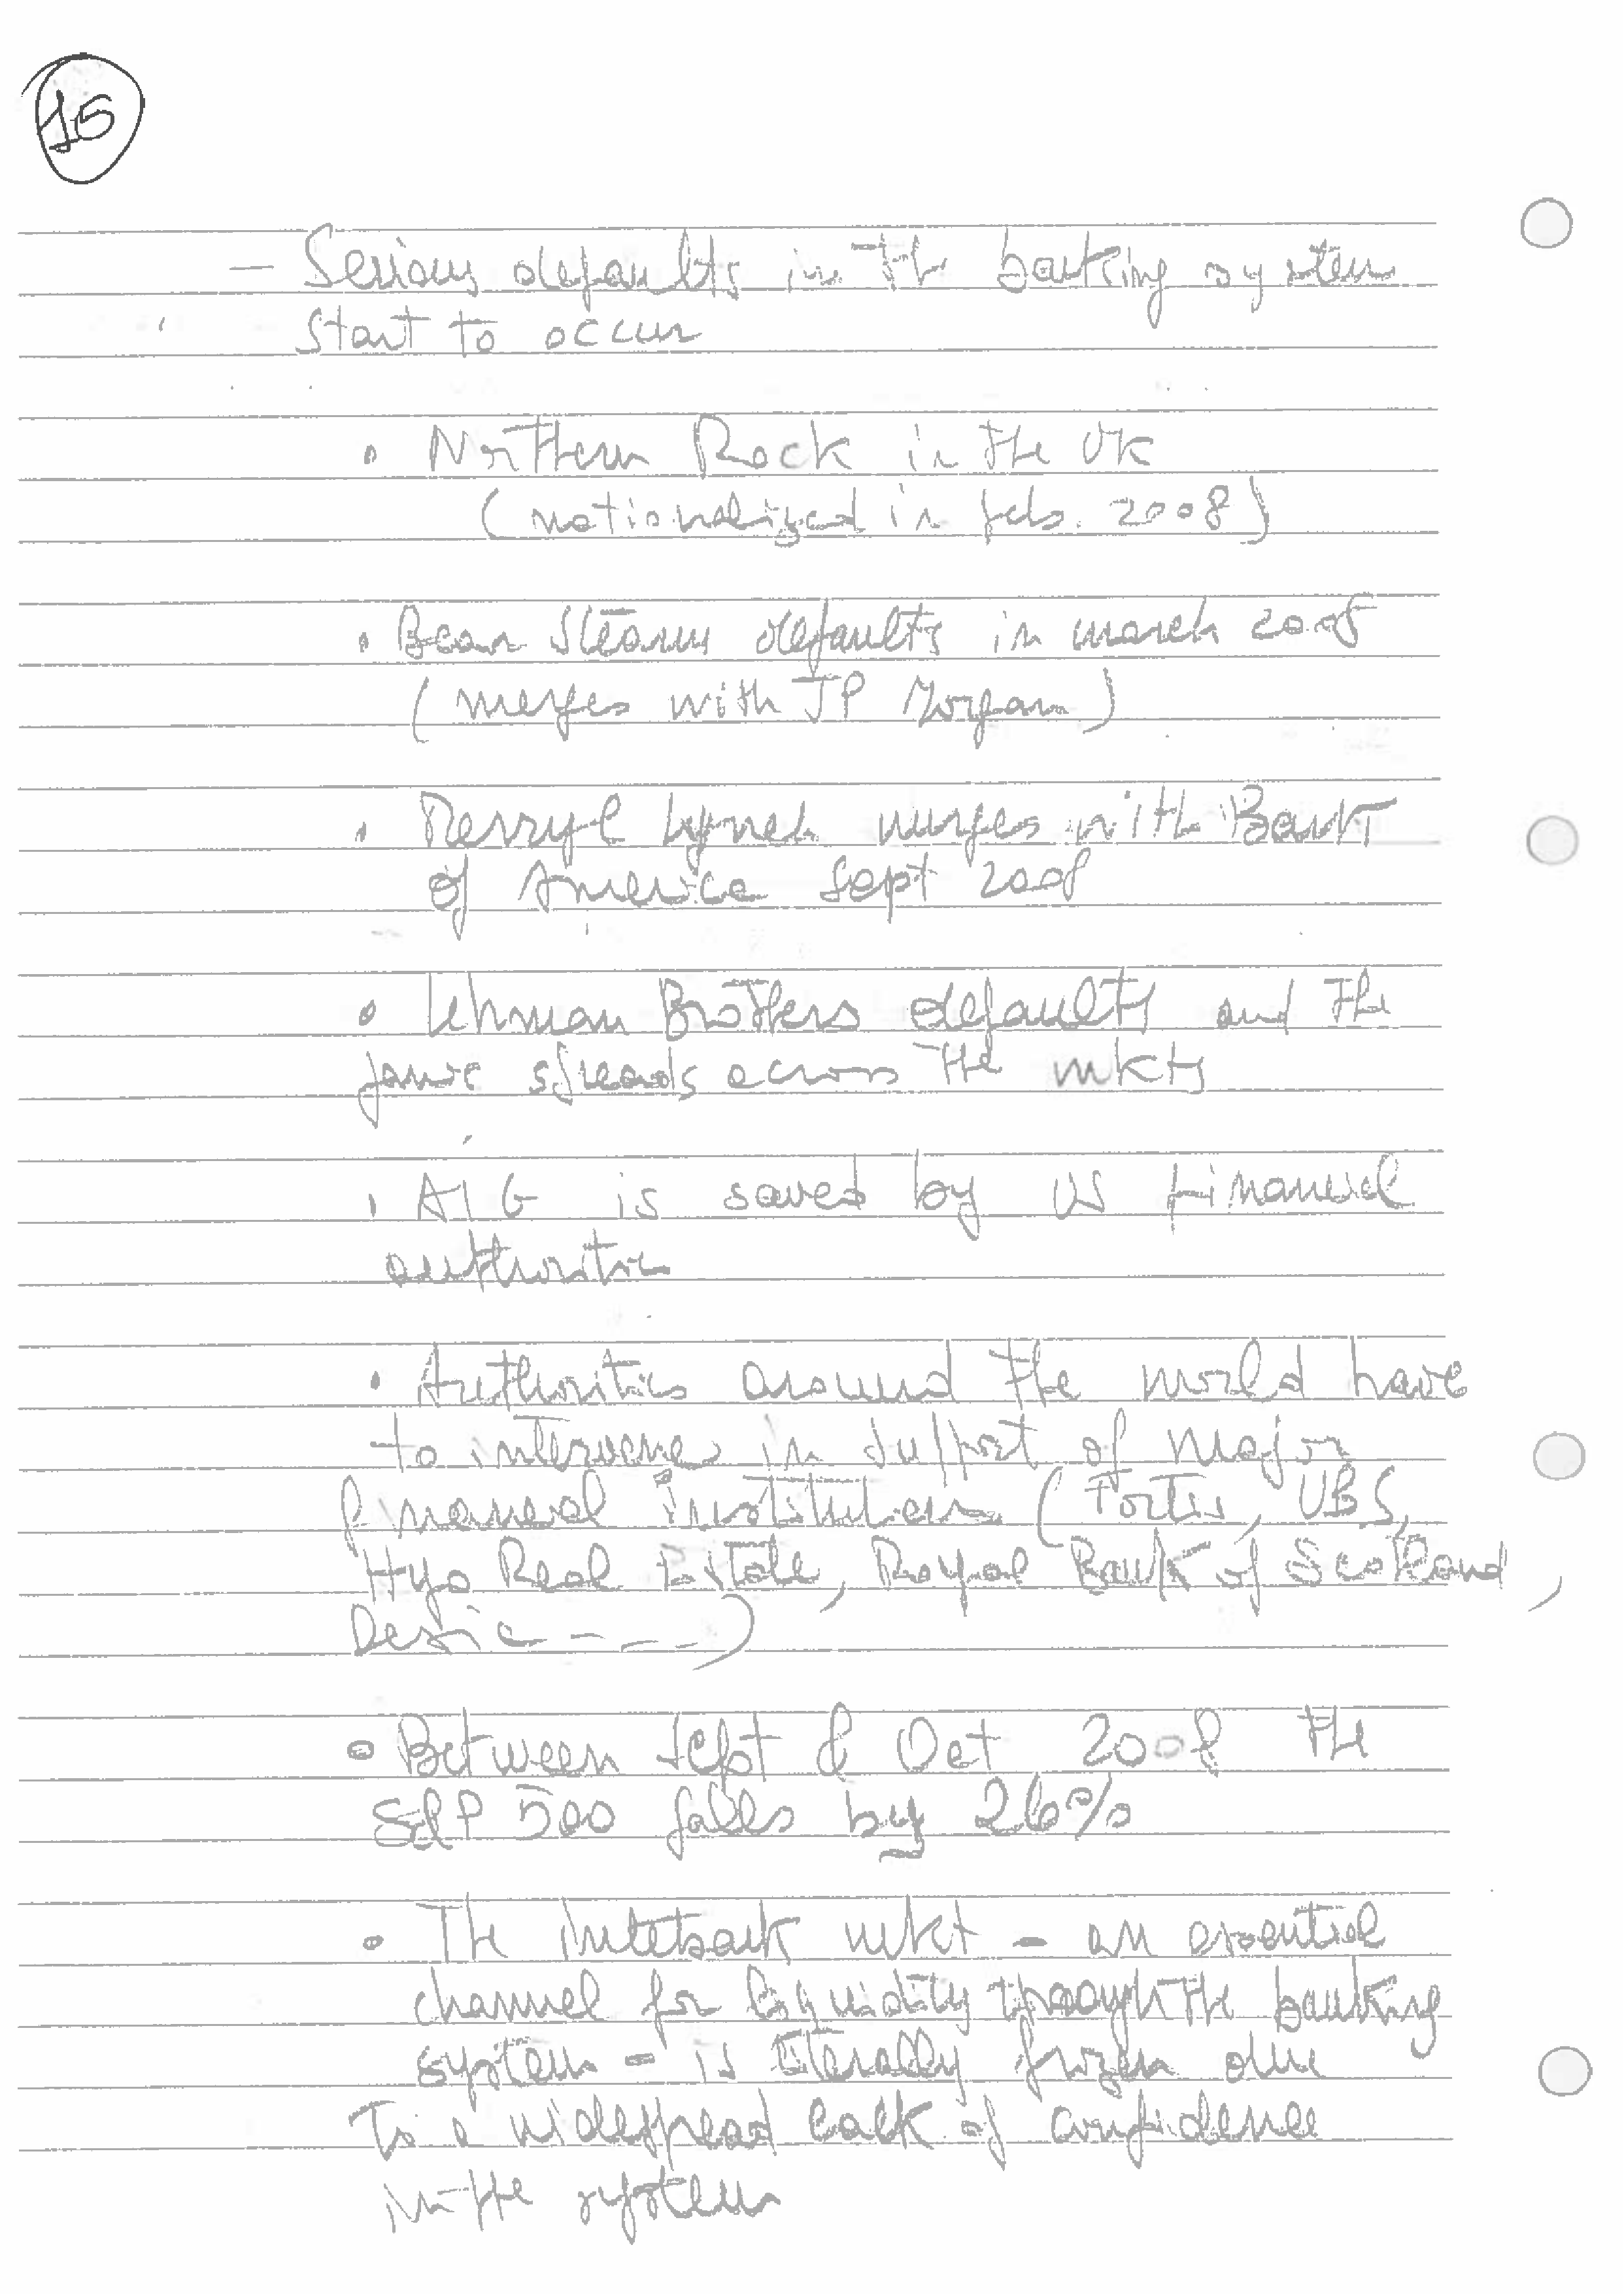 15
– Serious defaults in the banking system
start to occur
• Northern Rock in the UK
(nationalized in feb. 2008)
• Bear Stearns defaults in march 2008
(merges with JP Morgan)
• Merryl Lynch merges with Bank
of America Sept 2008
• Lehman Brothers defaults and the
panic spreads across the mkts
• AIG is saved by US Financial
authorities
• Authorities around the world have
to intervene in support of major
financial institutions (Fortis, UBS,
Hypo Real Estate, Royal Bank of Scotland,
Dexia - - - -)
• Between Sept & Oct 2008 the
S&P 500 falls by 26%
• The Interbank mkt – an essential
channel for liquidity through the banking
system – is literally frozen due
to a widespread lack of confidence
in the system